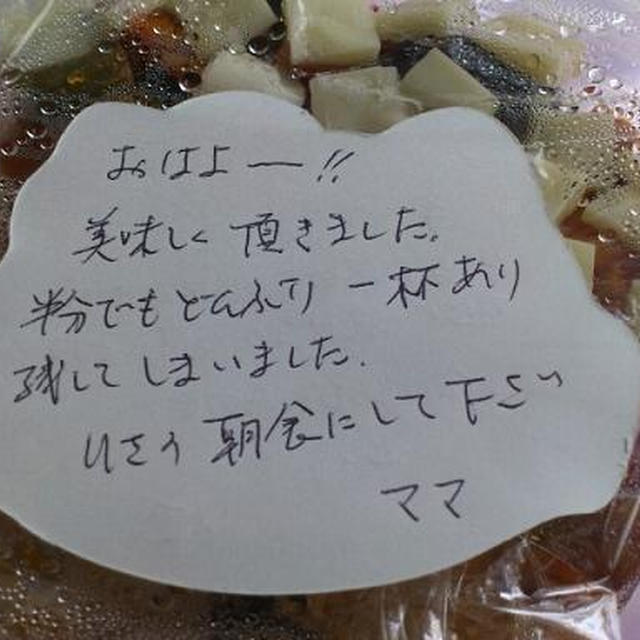 おはよー!!
美味しく頂きました。
半分でもどんぶり一杯あり
残してしまいました.
朝食にして下さい
ママ